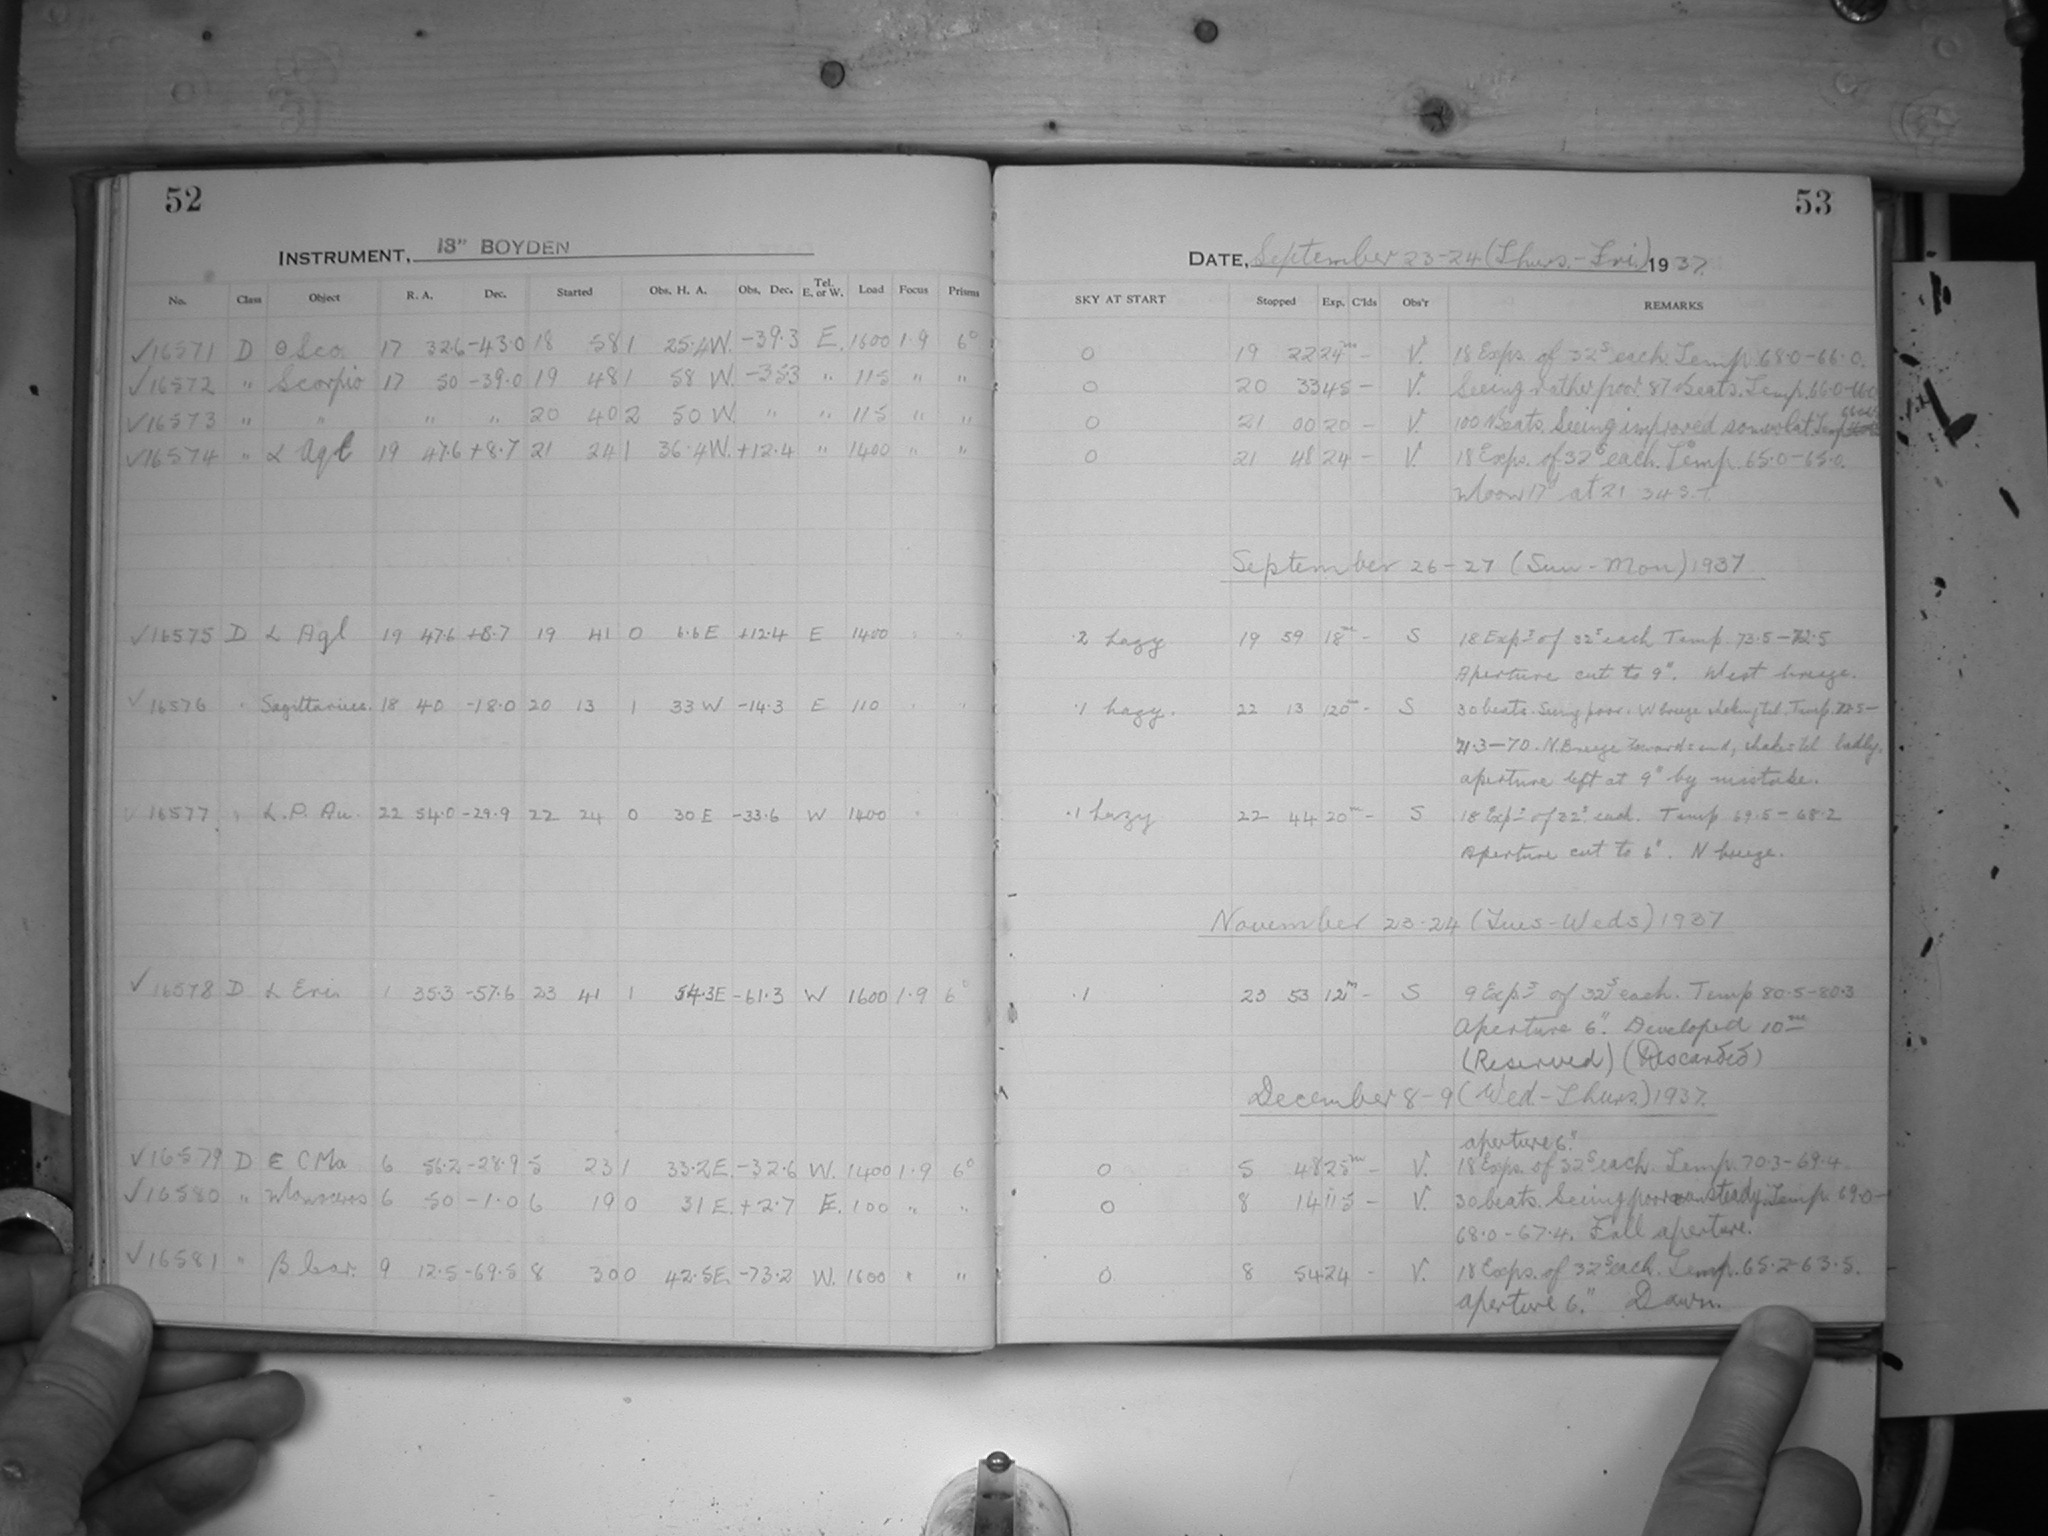 52
INSTRUMENT, 13" BOYDEN
No. Class Object R. A. Dec. Started Obs. H. A. Obs. Dec. Tel. E. or W. Load Focus Prisms
√16571 D θ Sco. 17 32.6 -43.0 18 58 1 25.4 W. -39.3 E. 1600 1.9 6°
√16572 " Scorpio 17 50 -39.0 19 48 1 58 W. -35.3 " 115 " "
√16573 " " " " 20 40 2 50 W. " " 115 " "
√16574 " α Aql 19 47.6 +8.7 21 24 1 36.4 W. +12.4 " 1400 " "
√16575 D α Aql 19 47.6 +8.7 19 41 0 6.6 E +12.4 E 1400 " "
√16576 " Sagittarius. 18 40 -18.0 20 13 1 33 W -14.3 E 110 " "
√16577 " α. P. Au. 22 54.0 -29.9 22 24 0 30 E -33.6 W 1400
√16578 D α Eri. 1 35.3 -57.6 23 41 1 54.3 E -61.3 W 1600 1.9 6°
√16579 D ε C Ma 6 56.2 -28.9 5 23 1 33.2 E. -32.6 W. 1400 1.9 6°
√16580 " Monoceros 6 50 -1.0 6 19 0 31 E. +2.7 E. 100 " "
√16581 " β Car. 9 12.5 -69.5 8 30 0 42.5 E. -73.2 W. 1600 " "
53
DATE, September 23-24 (Thurs.-Fri.) 1937
SKY AT START Stopped Exp. C'lds Obs'r REMARKS
0 19 22 24m - V. 18 Exps. of 32s each. Temp. 68.0-66.0.
0 20 33 45 - V. Seeing rather poor. 87 Beats. Temp. 66.0-66.0
0 21 00 20 - V. 100 Beats. Seeing improved somewhat Temp
0 21 48 24 - V. 18 Exps. of 32s each. Temp. 65.0-65.0.
Moon 17d at 21 34 S.T.
September 26-27 (Sun-Mon) 1937
.2 hazy 19 59 18m - S 18 Exps of 32s each Temp. 73.5-72.5
Aperture cut to 9". West breeze.
.1 hazy. 22 13 120m - S 30 beats. Seeing poor. W breeze shaking tel. Temp. 72.5-
71.3-70. N. Breeze towards end, shakes tel badly.
aperture left at 9" by mistake.
.1 hazy 22 44 20m - S 18 Exps of 32s each. Temp 69.5-68.2
Aperture cut to 6". N breeze.
November 23-24 (Tues-Weds) 1937
.1 23 53 12m - S 9 Exps of 32s each. Temp 80.5-80.3
Aperture 6". Developed 10m
(Reserved) (Discarded)
December 8-9 (Wed-Thurs.) 1937.
aperture 6"
0 5 48 25m - V. 18 Exps. of 32s each. Temp. 70.3-69.4
0 8 14 115 - V. 30 beats. Seeing poor unsteady. Temp. 69.0-
68.0-67.4. Full aperture.
0 8 54 24 - V. 18 Exps. of 32s each. Temp. 65.2-63.5.
aperture 6." Dawn.